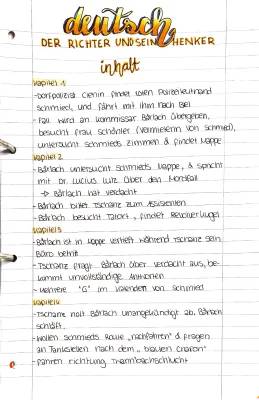 deutsch
DER RICHTER UND SEIN HENKER
inhalt
Kapitel 1
- Dorfpolizist Clenin findet toten Polizeileutnand
Schmied, und fährt mit ihm nach Biel
- Fall wird an Kommissar Bärlach übergeben,
besucht Frau Schönler (Vermieterin von Schmied),
untersucht Schmieds Zimmer & findet Mappe
Kapitel 2
- Bärlach untersucht Schmieds Mappe, & spricht
mit Dr. Lucius Lutz über den Mordfall
→ Bärlach hat Verdacht
- Bärlach bittet Tschanz zum Assistenten
- Bärlach besucht Tatort, findet Revolverkugel
Kapitel 3
- Bärlach ist in Mappe vertieft während Tschanz sein
Büro betritt
- Tschanz fragt Bärlach über Verdacht aus, be-
kommt unvollständige Antworten
- mehrere "G" im Kalender von Schmied
Kapitel 4
- Tschanz holt Bärlach unangekündigt ab, Bärlach
schläft
- wollen Schmieds Route "nachfahren" & fragen
an Tankstellen nach dem "blauen Charon"
- fahren Richtung Twannbachschlucht